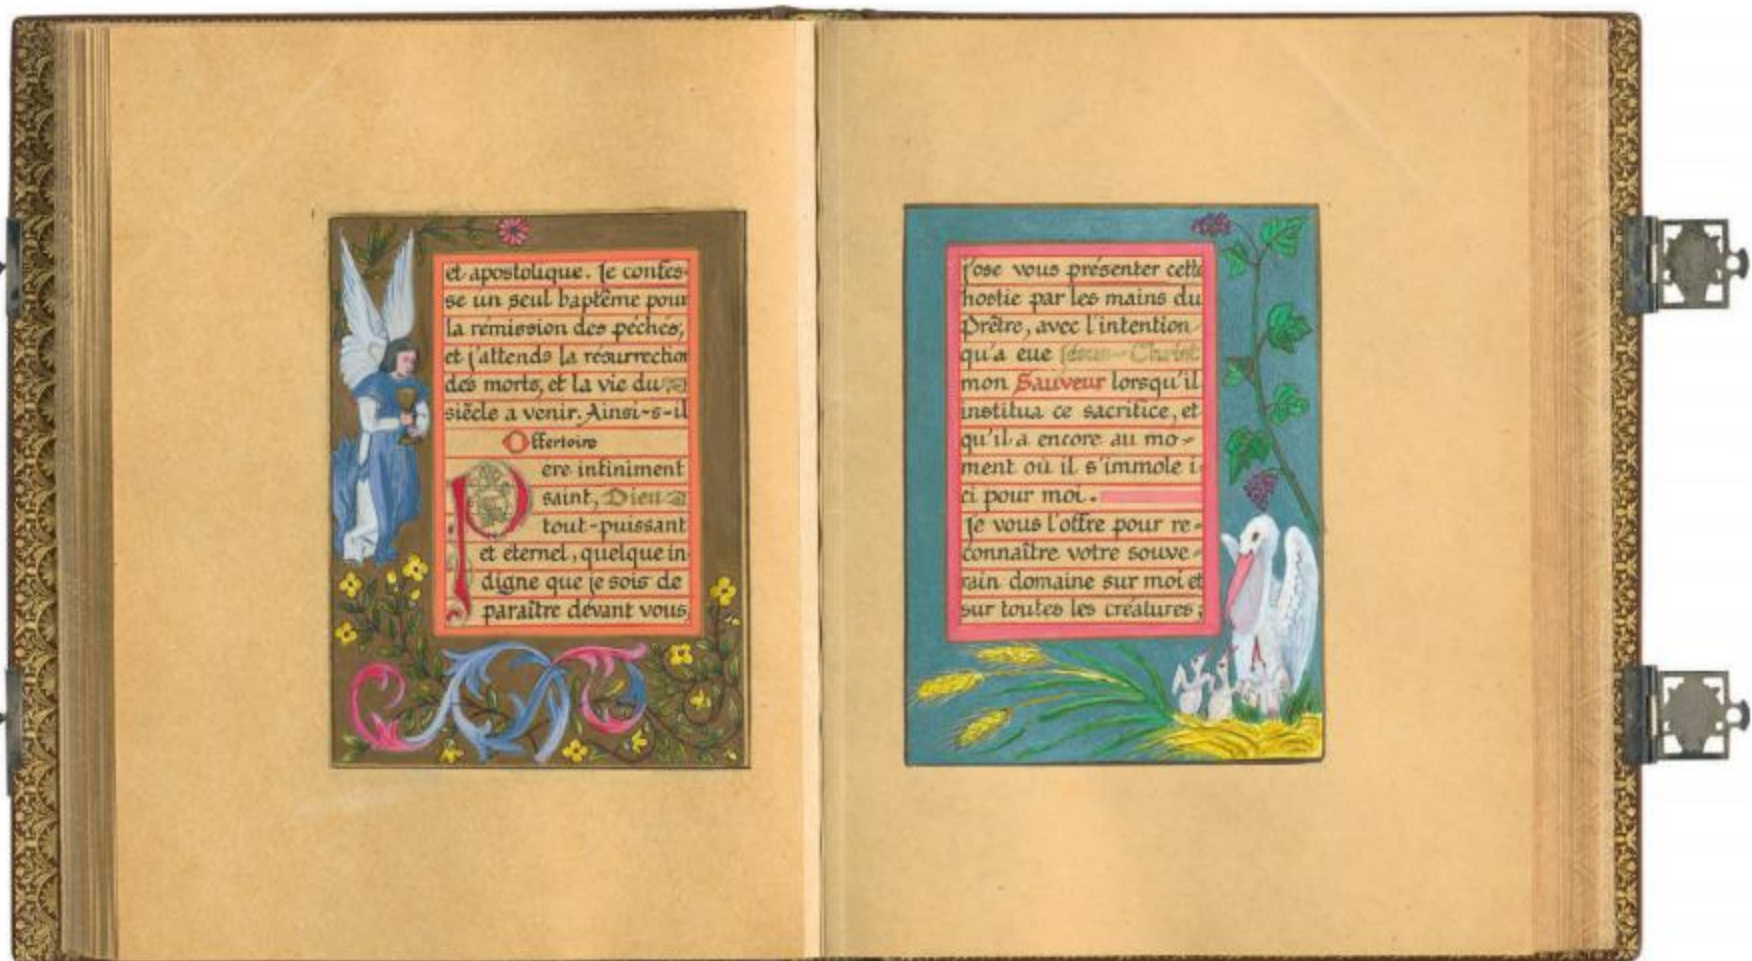 et apostolique. Je confes-
se un seul baptême pour
la rémission des péchés,
et j'attends la résurrection
des morts, et la vie du
siècle a venir. Ainsi-s-il
Offertoire
Pere infiniment
saint, Dieu
tout-puissant
et eternel, quelque in-
digne que je sois de
paraître devant vous,
j'ose vous présenter cette
hostie par les mains du
Prêtre, avec l'intention
qu'a eue Jésus-Christ
mon Sauveur lorsqu'il
institua ce sacrifice, et
qu'il a encore au mo-
ment où il s'immole i-
ci pour moi.
Je vous l'offre pour re-
connaître votre souve-
rain domaine sur moi et
sur toutes les créatures;